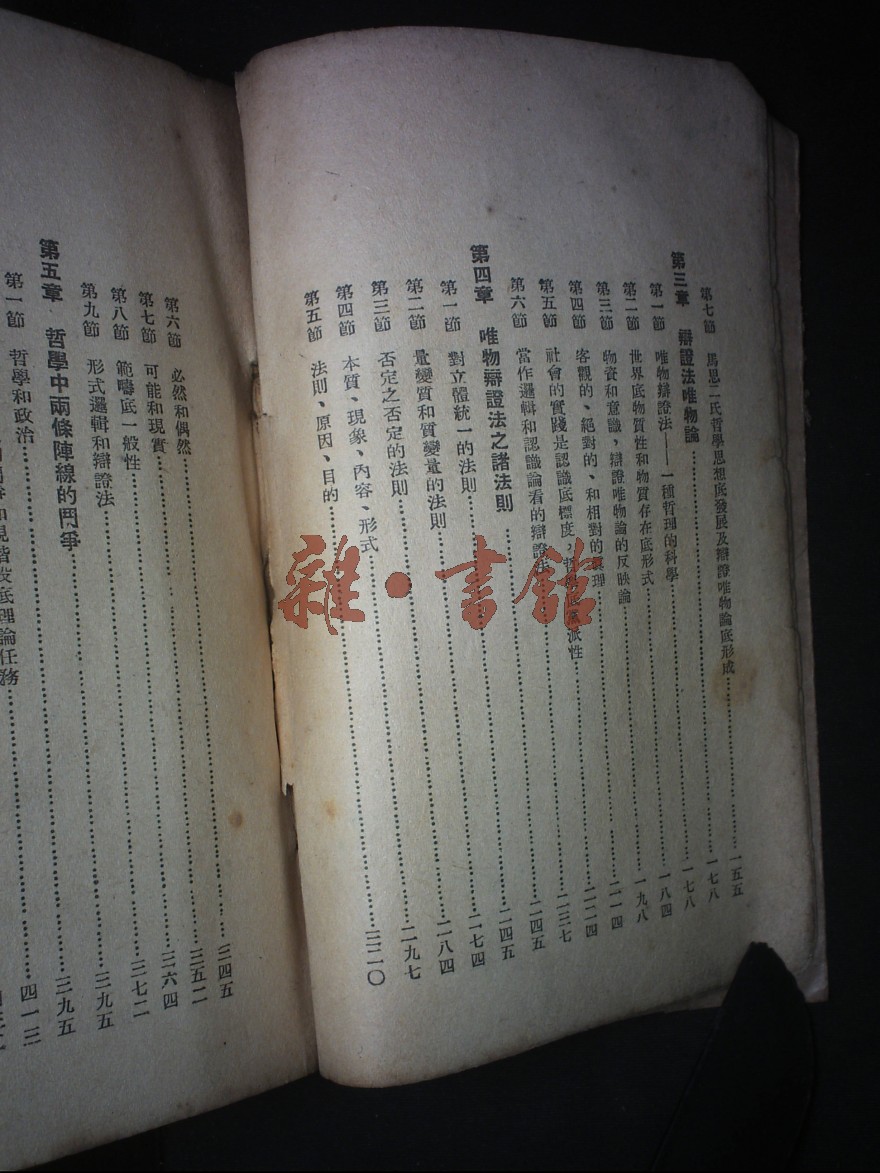 第七節 馬恩二氏哲學思想底發展及辯證唯物論底形成……一五五
第三章 辯證法唯物論……一七八
第一節 唯物辯證法——一種哲理的科學……一七八
第二節 世界底物質性和物質存在底形式……一八四
第三節 物資和意識,辯證唯物論的反映論……一九八
第四節 客觀的、絕對的、和相對的真理……二一四
第五節 社會的實踐是認識底標度,哲學底黨派性……二二四
第六節 當作邏輯和認識論看的辯證法……二三七
第四章 唯物辯證法之諸法則……二四五
第一節 對立體統一的法則……二四五
第二節 量變質和質變量的法則……二七四
第三節 否定之否定的法則……二八四
第四節 本質、現象、內容、形式……二九七
第五節 法則、原因、目的……三二〇
第六節 必然和偶然……三四五
第七節 可能和現實……三五二
第八節 範疇底一般性……三六四
第九節 形式邏輯和辯證法……三七二
第五章 哲學中兩條陣線的鬥爭……三九五
第一節 哲學和政治……三九五
和現階段底理論任務……四一三
雜·書館